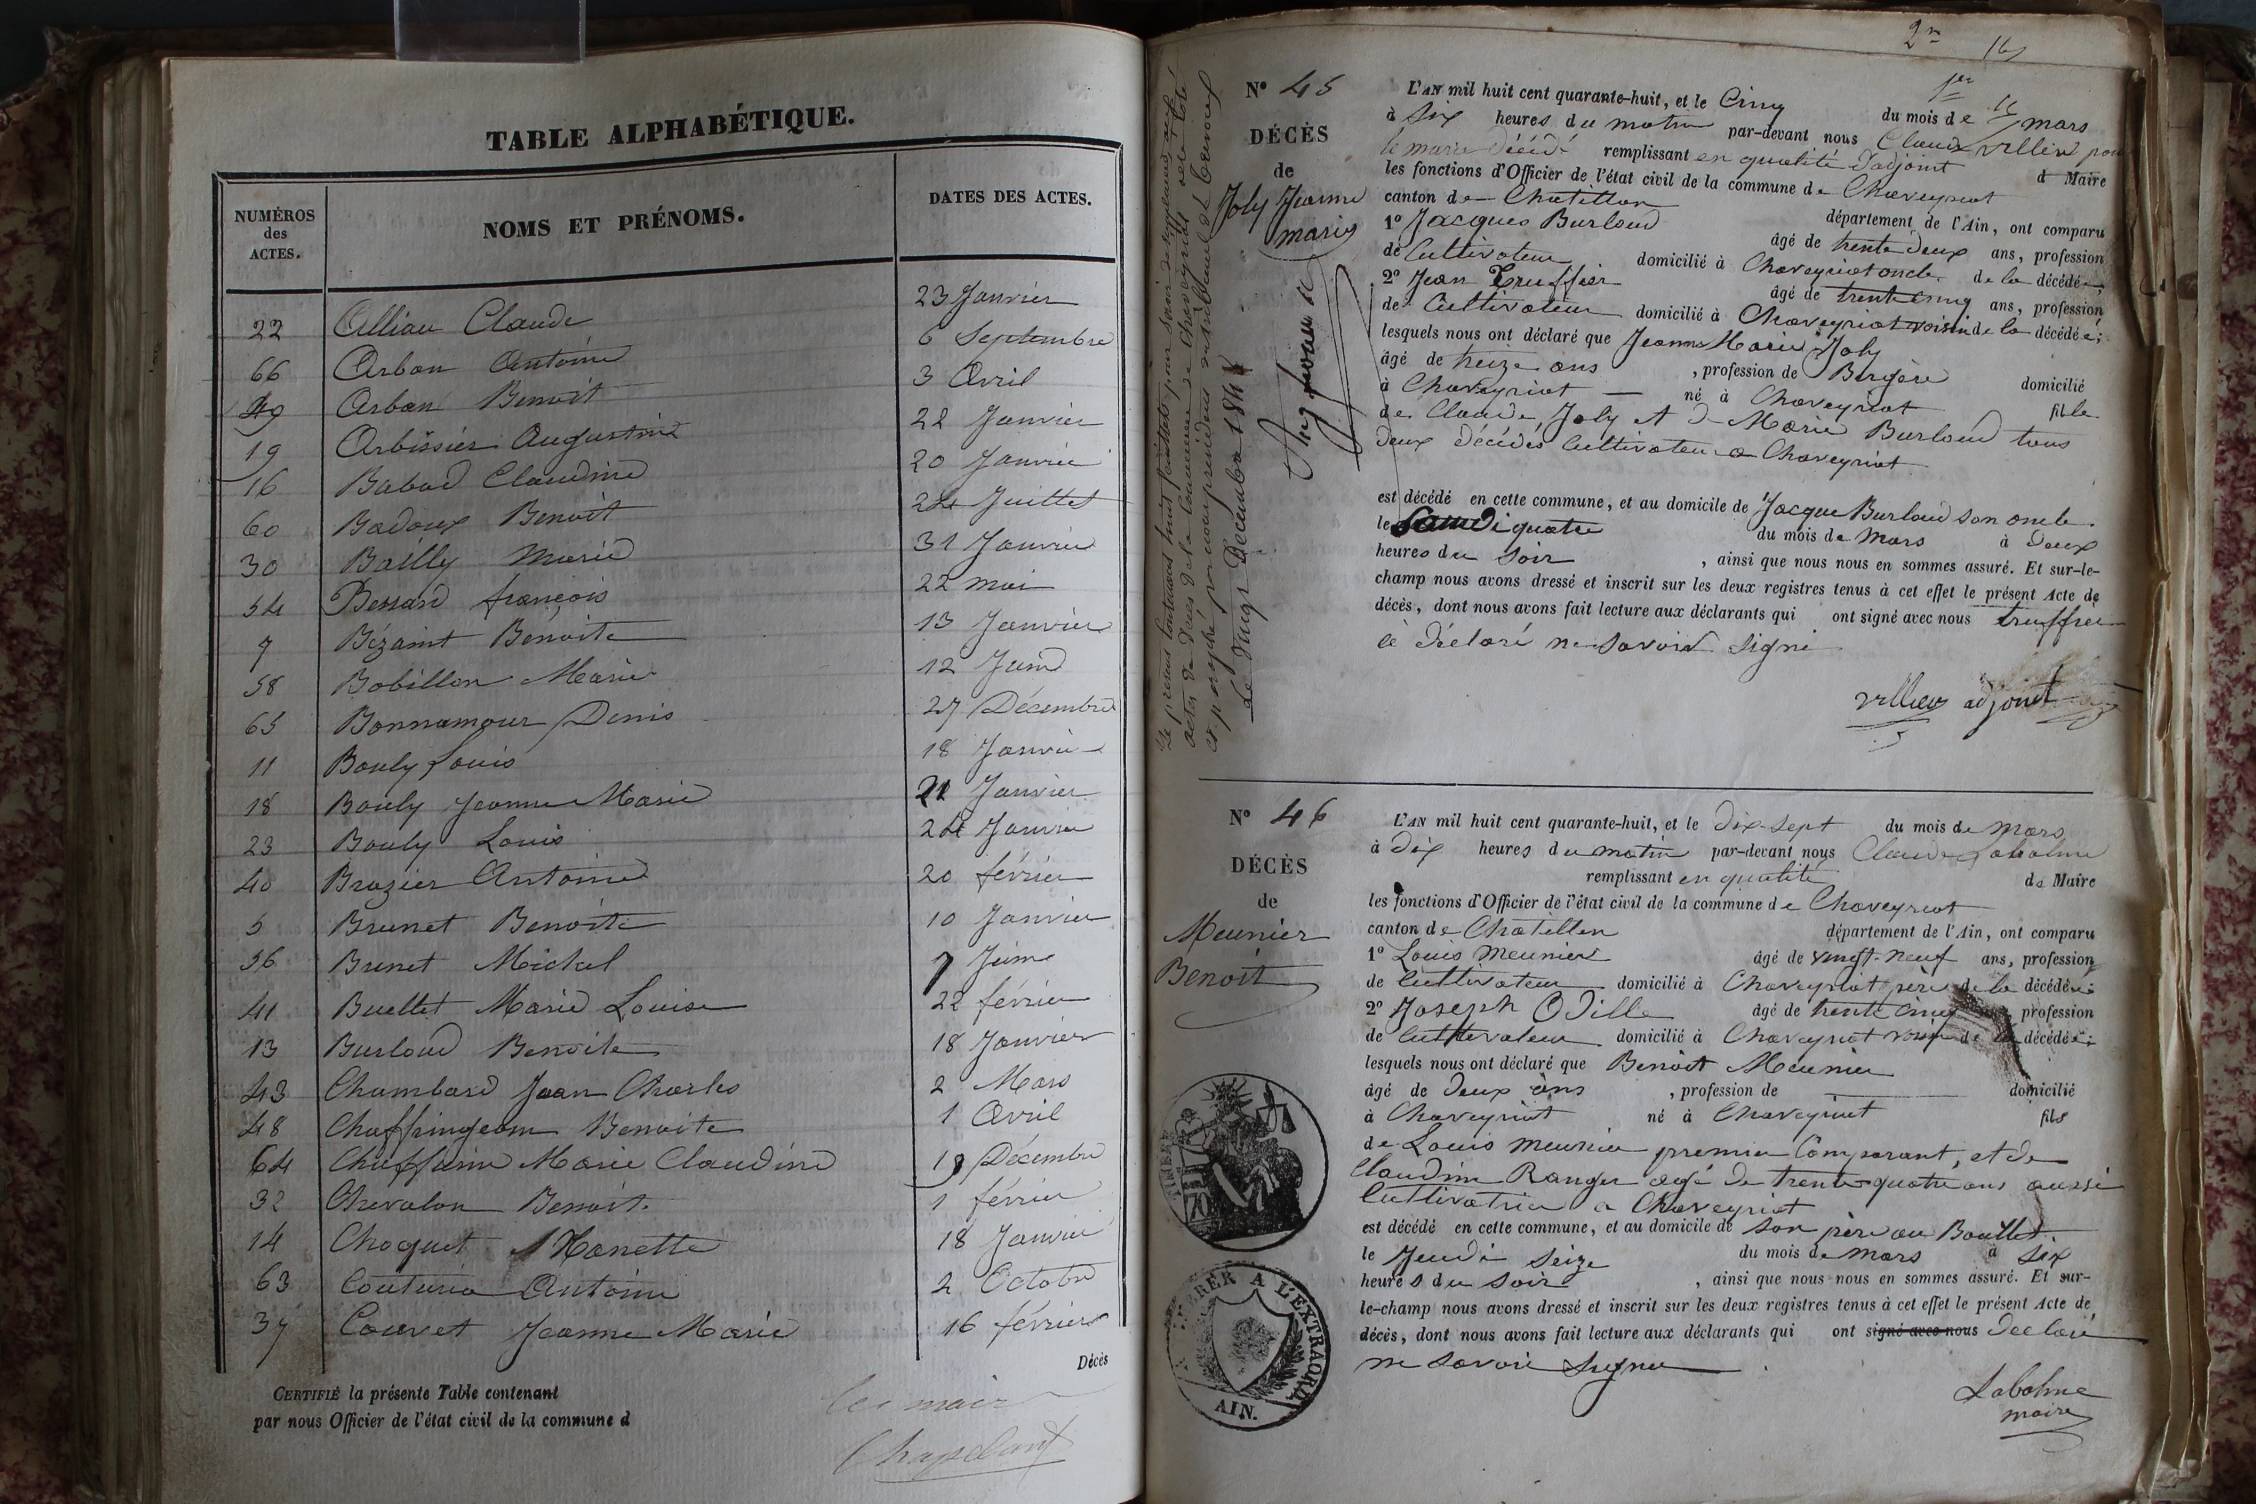 TABLE ALPHABÉTIQUE.
NUMÉROS des ACTES. NOMS ET PRÉNOMS. DATES DES ACTES.
22 Alliau Claude 23 Janvier
66 Arban Antoine 6 Septembre
49 Arban Benoit 3 Avril
19 Arbissier Augustine 22 Janvier
16 Babad Claudine 20 Janvier
60 Badoux Benoit 24 Juillet
30 Bailly Marie 31 Janvier
54 Bessard françois 22 mai
7 Bézaint Benoite 13 Janvier
58 Bobillon Marie 12 Juin
65 Bonnamour Denis 27 Décembre
11 Bouly Louis 18 Janvier
18 Bouly Jeanne Marie 21 Janvier
23 Bouly Louis 24 Janvier
40 Brazier Antoine 20 février
5 Brunet Benoite 10 Janvier
56 Brunet Michel 7 Juin
41 Buellet Marie Louise 22 février
13 Burloud Benoite 18 Janvier
43 Chambard Jean Charles 2 Mars
48 Chaffringeon Benoite 1 Avril
64 Marie Claudine Décembre
32 Chevalon Benoit 1 février
14 Choquet Nanette 18 Janvier
63 Couturier Antoine 2 Octobre
37 Couvet Jeanne Marie 16 février
Décès
CERTIFIÉ la présente Table contenant
par nous Officier de l'état civil de la commune d
le maire
Chapelant
2me 16
N° 45
DÉCÈS
de
Joly Jeanne
marie
L'AN mil huit cent quarante-huit, et le Cinq du mois de mars
à six heures du matin par-devant nous Claude Villier pour
le maire décédé remplissant en qualité d'adjoint d Maire
les fonctions d'Officier de l'état civil de la commune de Chaveyriat
canton de Chatillon département de l'Ain, ont comparu
1° Jacques Burloud âgé de trente deux ans, profession
de Cultivateur domicilié à Chaveyriat oncle de la décédée;
2° Jean Truffier âgé de trente cinq ans, profession
de Cultivateur domicilié à Chaveyriat voisin de la décédée;
lesquels nous ont déclaré que Jeanne Marie Joly
âgé de treize ans , profession de Bergère domicilié
à Chaveyriat — né à Chaveyriat fille
de Claude Joly et de Marie Burloud tous
deux décédés Cultivateur a Chaveyriat
est décédé en cette commune, et au domicile de Jacque Burloud son oncle.
le Samedi quatre du mois de mars à deux
heures du soir , ainsi que nous nous en sommes assuré. Et sur-le-
champ nous avons dressé et inscrit sur les deux registres tenus à cet effet le présent Acte de
décès, dont nous avons fait lecture aux déclarants qui ont signé avec nous truffier
à déclaré ne savoir signé
Villier adjoint
N° 46
DÉCÈS
de
Meunier
Benoit
L'AN mil huit cent quarante-huit, et le dix-sept du mois de mars
à dix heures du matin par-devant nous Claude Labalme
remplissant en qualité de Maire
les fonctions d'Officier de l'état civil de la commune de Chaveyriat
canton de Chatillon département de l'Ain, ont comparu
1° Louis Meunier âgé de vingt-neuf ans, profession
de Cultivateur domicilié à Chaveyriat père de la décédée;
2° Joseph Odille âgé de trente cinq profession
de Cultivateur domicilié à Chaveyriat voisin de la décédée;
lesquels nous ont déclaré que Benoit Meunier
âgé de deux ans , profession de domicilié
à Chaveyriat né à Chaveyriat fils
de Louis Meunier premier Comparant, et de
Claudine Ranger agé de trente-quatre ans aussi
Cultivatrice a Chaveyriat
est décédé en cette commune, et au domicile de son père au Boullet
le Jeudi seize du mois de mars à six
heures du soir , ainsi que nous nous en sommes assuré. Et sur-
le-champ nous avons dressé et inscrit sur les deux registres tenus à cet effet le présent Acte de
décès, dont nous avons fait lecture aux déclarants qui ont signé avec nous declaré
ne savoir signer
Labalme
maire
TIMBRE
70
TIMBRER A L'EXTRAORD.
AIN.